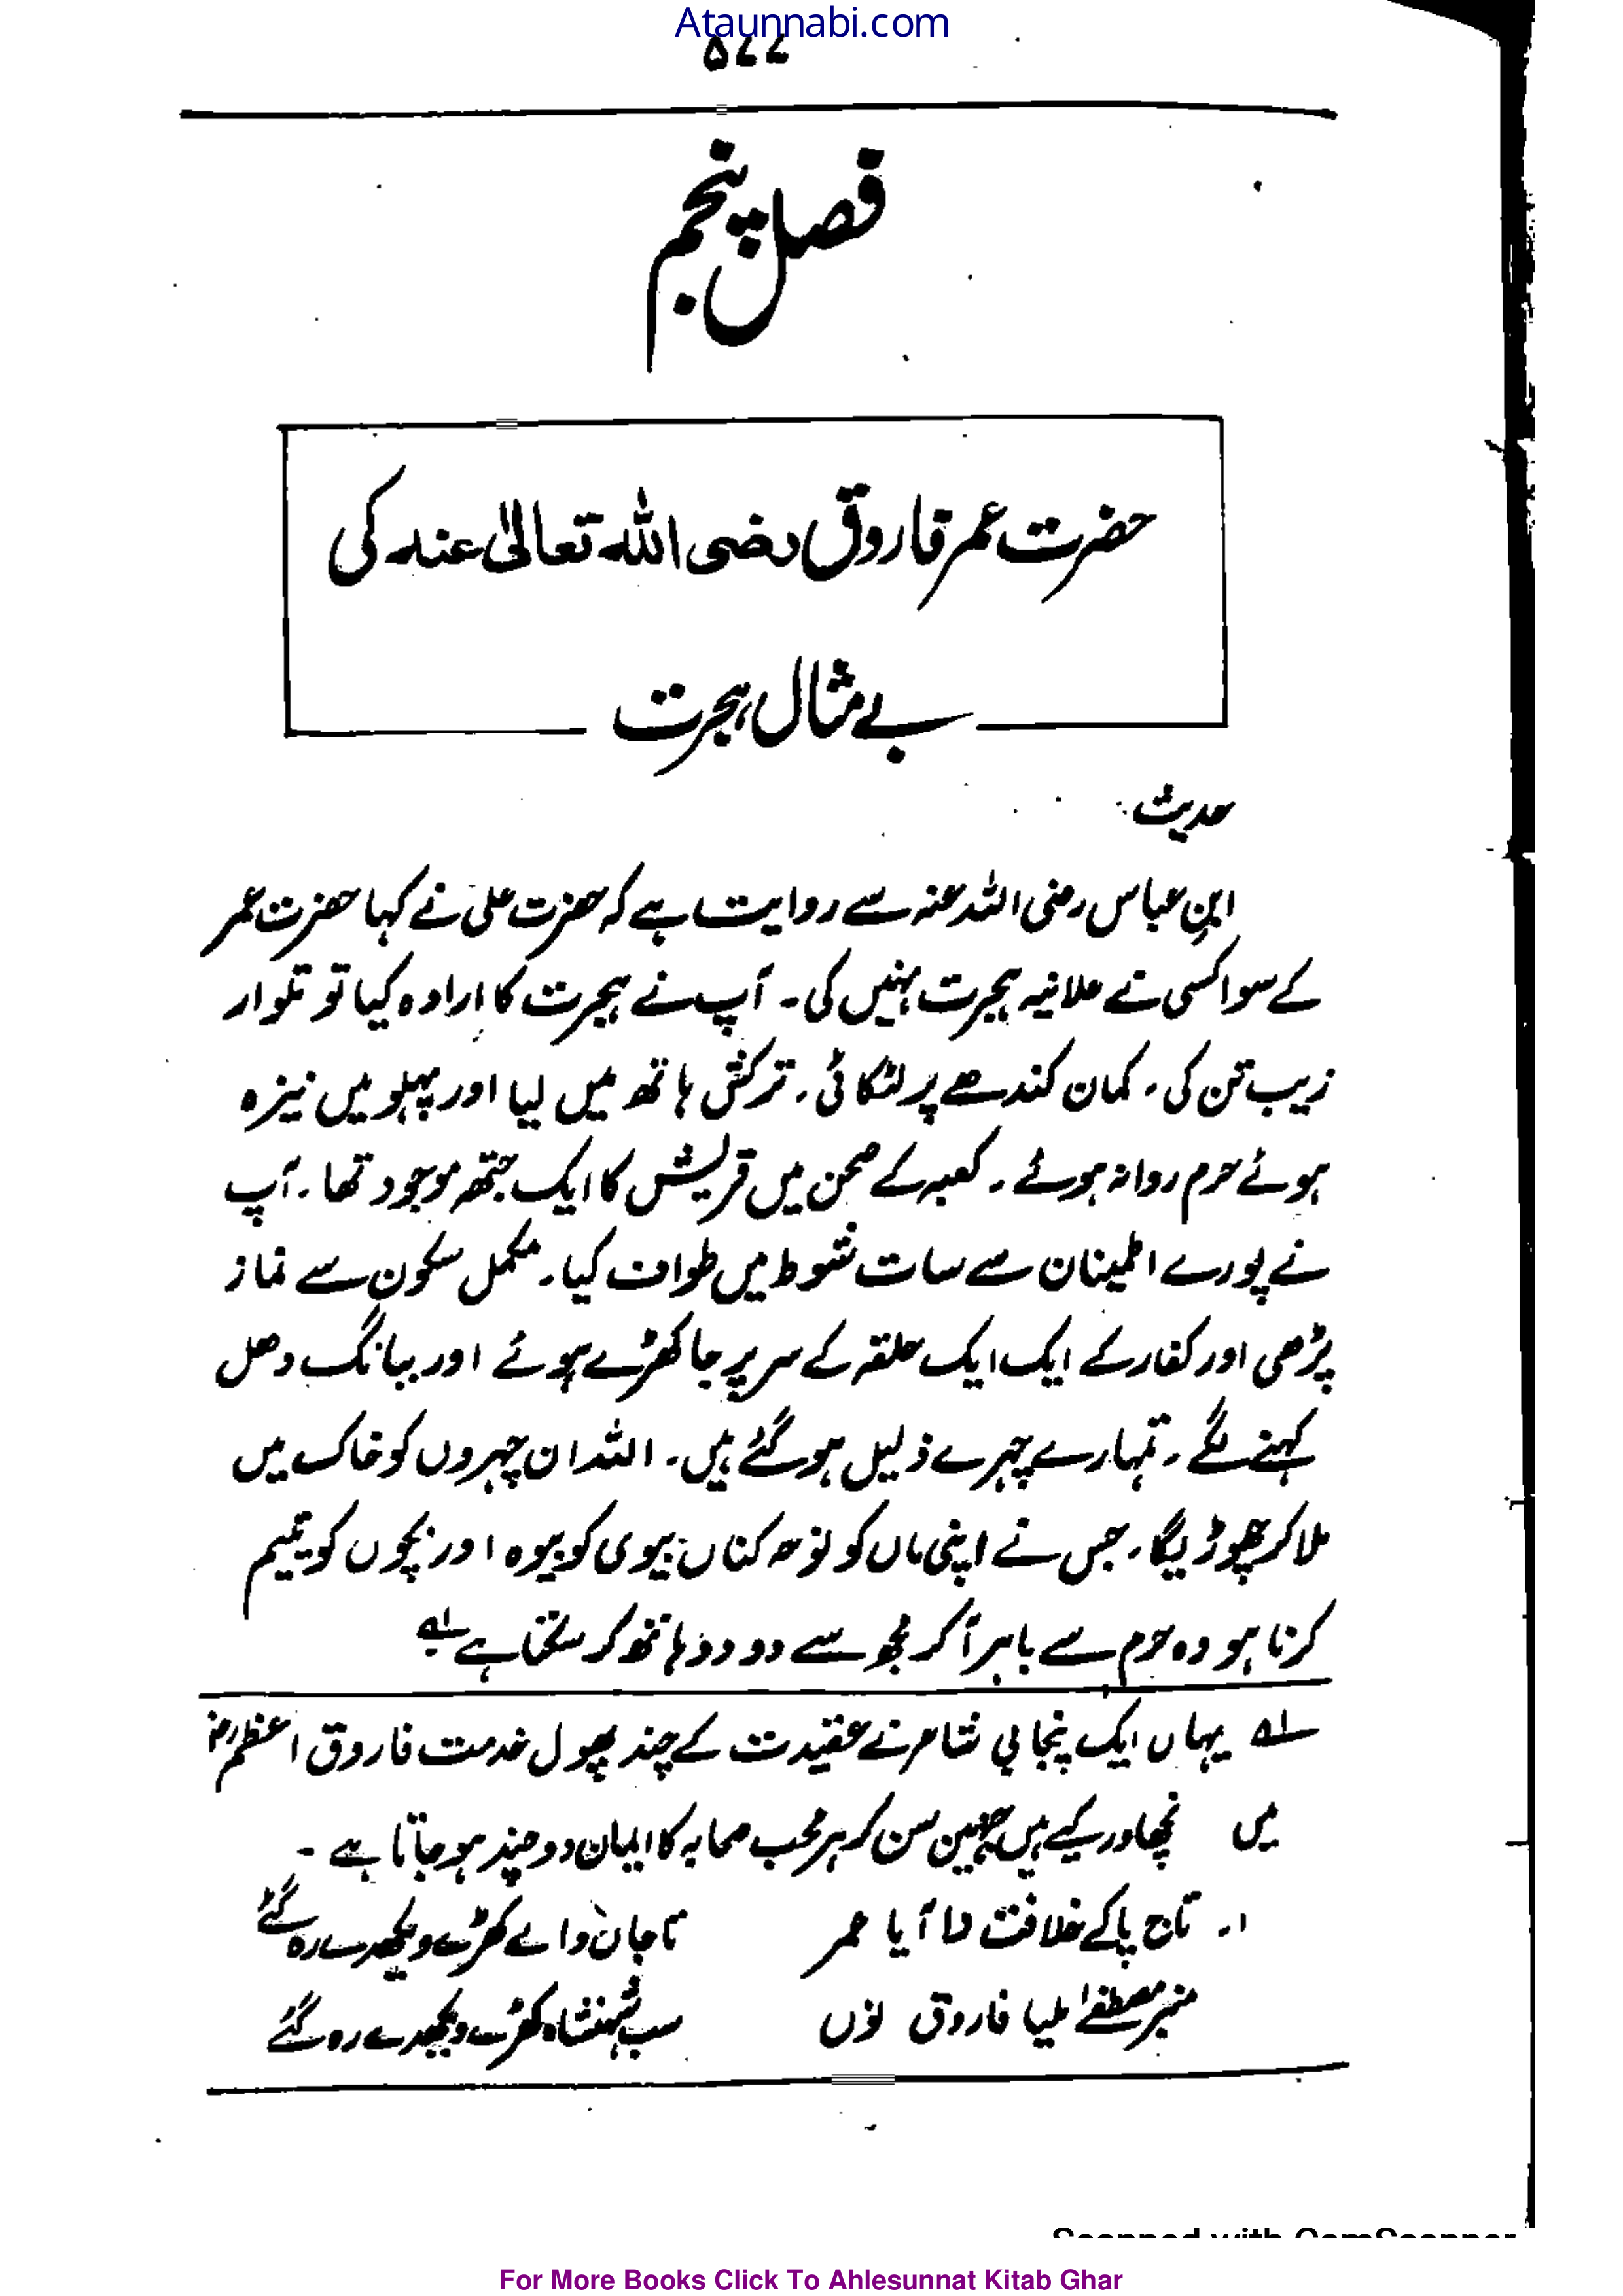 Ataunnabi.com
۵۷۷
فصل پنجم
حضرت عمر فاروق رضی اللہ تعالیٰ عنہ کی
بے مثال ہجرت
حدیث
ابن عباس رضی اللہ عنہ سے روایت ہے کہ حضرت علی نے کہا حضرت عمر
کے سوا کسی نے علانیہ ہجرت نہیں کی۔ آپ نے ہجرت کا ارادہ کیا تو تلوار
زیب تن کی، کمان کندھے پر لٹکائی، ترکش ہاتھ میں لیا اور پہلو میں نیزہ
ہوئے حرم روانہ ہوئے۔ کعبہ کے صحن میں قریش کا ایک جتھہ موجود تھا۔ آپ
نے پورے اطمینان سے سات شوط میں طواف کیا۔ مکمل سکون سے نماز
پڑھی اور کفار کے ایک ایک حلقہ کے سر پر جا کھڑے ہوئے اور ببانگ دھل
کہنے لگے۔ تمہارے چہرے ذلیل ہو گئے ہیں۔ اللہ ان چہروں کو خاک میں
ملا کر چھوڑیگا، جس نے اپنی ماں کو نوحہ کناں بیوی کو بیوہ اور بچوں کو یتیم
کرنا ہو وہ حرم سے باہر آ کر مجھ سے دو دو ہاتھ کر سکتا ہے لہ
لہ یہاں ایک پنجابی شاعر نے عقیدت کے چند پھول خدمت فاروق اعظم رض
میں نچھاور کیے ہیں جنہیں سن کر ہر محب صحابہ کا ایمان دو چند ہو جاتا ہے۔
۱۔ تاج پا کے خلافت دا آیا عمر تاجاں والے کھڑے ویکھدے رہ گئے
منبر مصطفےٰ ملیا فاروق نوں سب شہنشاہ کھڑے ویکھدے رہ گئے
Scanned with CamScanner
For More Books Click To Ahlesunnat Kitab Ghar